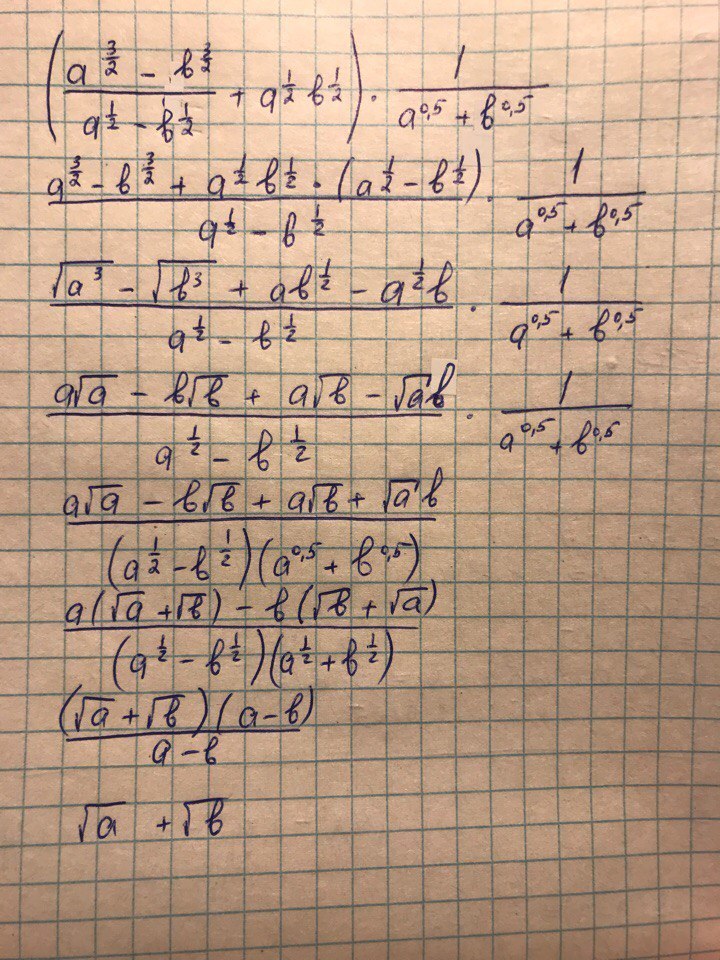 (a^(3/2) - b^(3/2) / a^(1/2) - b^(1/2) + a^(1/2) b^(1/2)) · 1 / a^0,5 + b^0,5
a^(3/2) - b^(3/2) + a^(1/2) b^(1/2) · (a^(1/2) - b^(1/2)) / a^(1/2) - b^(1/2) · 1 / a^0,5 + b^0,5
√a³ - √b³ + ab^(1/2) - a^(1/2)b / a^(1/2) - b^(1/2) · 1 / a^0,5 + b^0,5
a√a - b√b + a√b - √a b / a^(1/2) - b^(1/2) · 1 / a^0,5 + b^0,5
a√a - b√b + a√b + √a b / (a^(1/2) - b^(1/2))(a^0,5 + b^0,5)
a(√a + √b) - b(√b + √a) / (a^(1/2) - b^(1/2))(a^(1/2) + b^(1/2))
(√a + √b)(a - b) / a - b
√a + √b